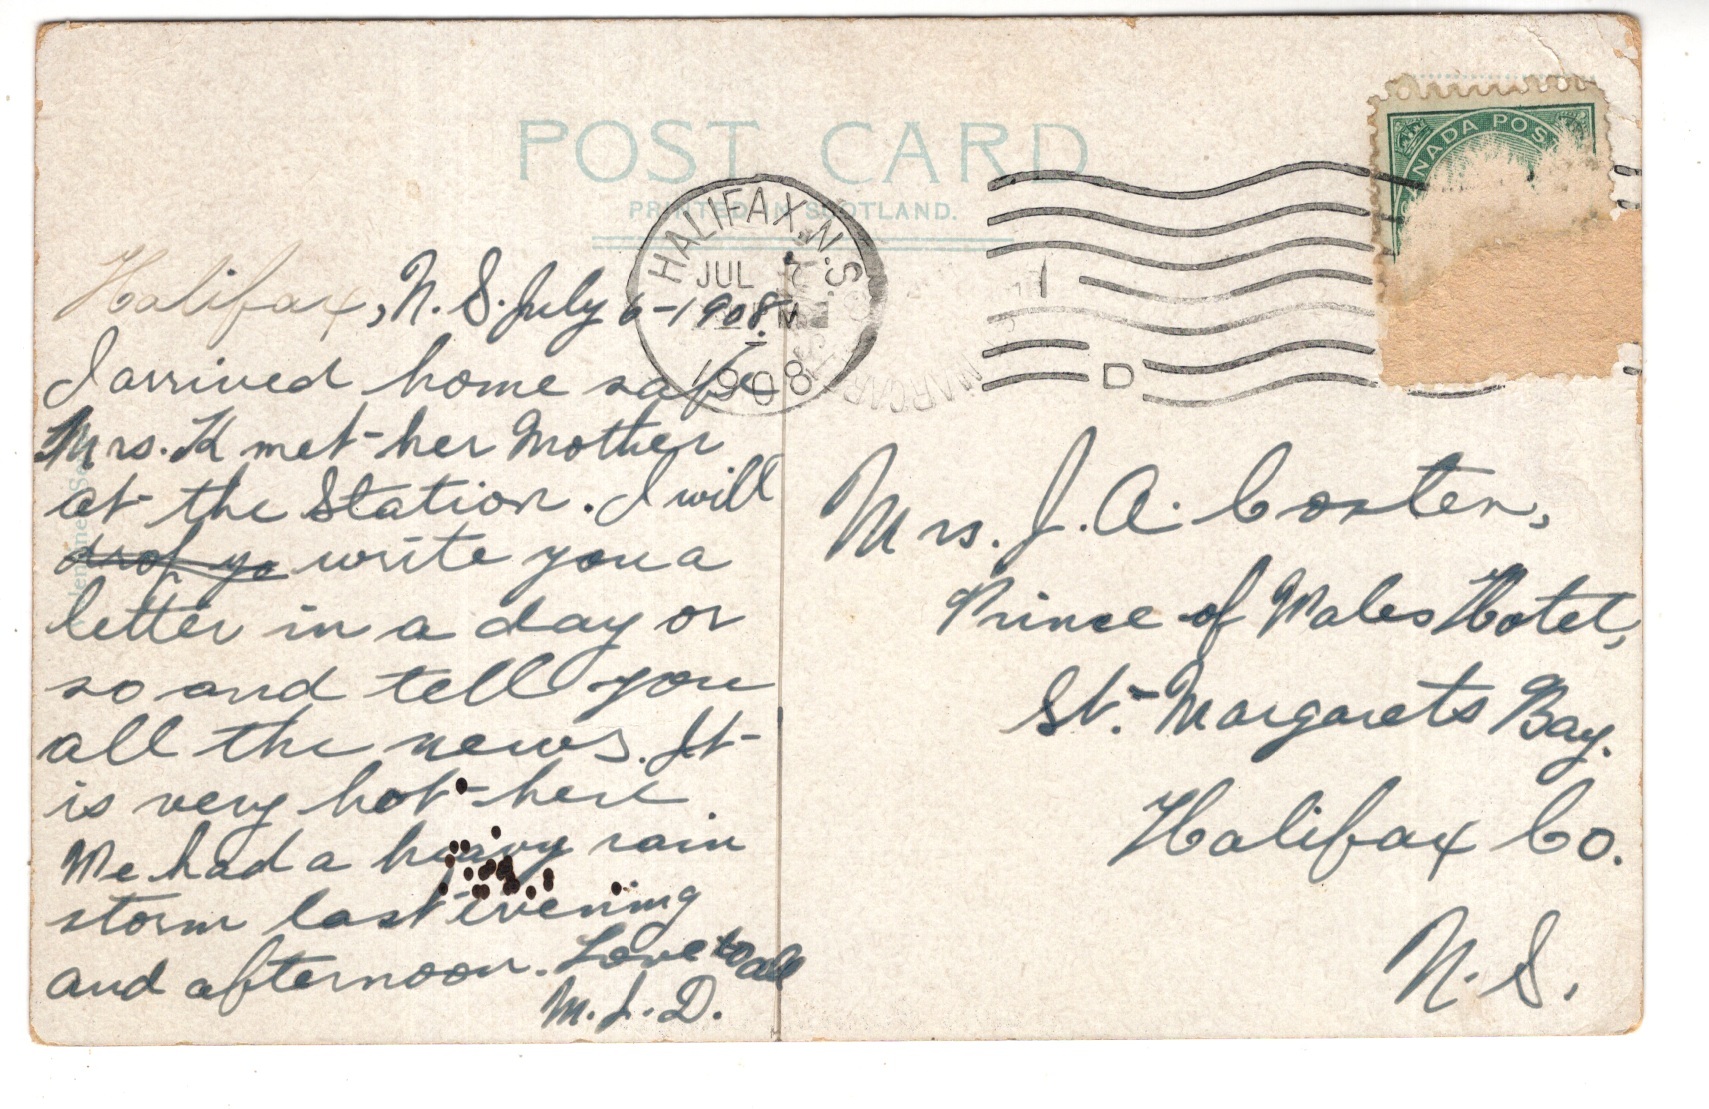 POST CARD
PRINTED IN SCOTLAND.
HALIFAX, N.S.
JUL
1908
CANADA POS
D
Halifax, N. S. July 6-1908.
I arrived home safe
Mrs. K met her Mother
at the Station. I will
drop yo write you a
letter in a day or
so and tell you
all the news. It
is very hot here
We had a heavy rain
storm last evening
and afternoon. Love to all
M. J. D.
Mrs. J. A. Coster,
Prince of Wales Hotel,
St. Margarets Bay.
Halifax Co.
N. S.